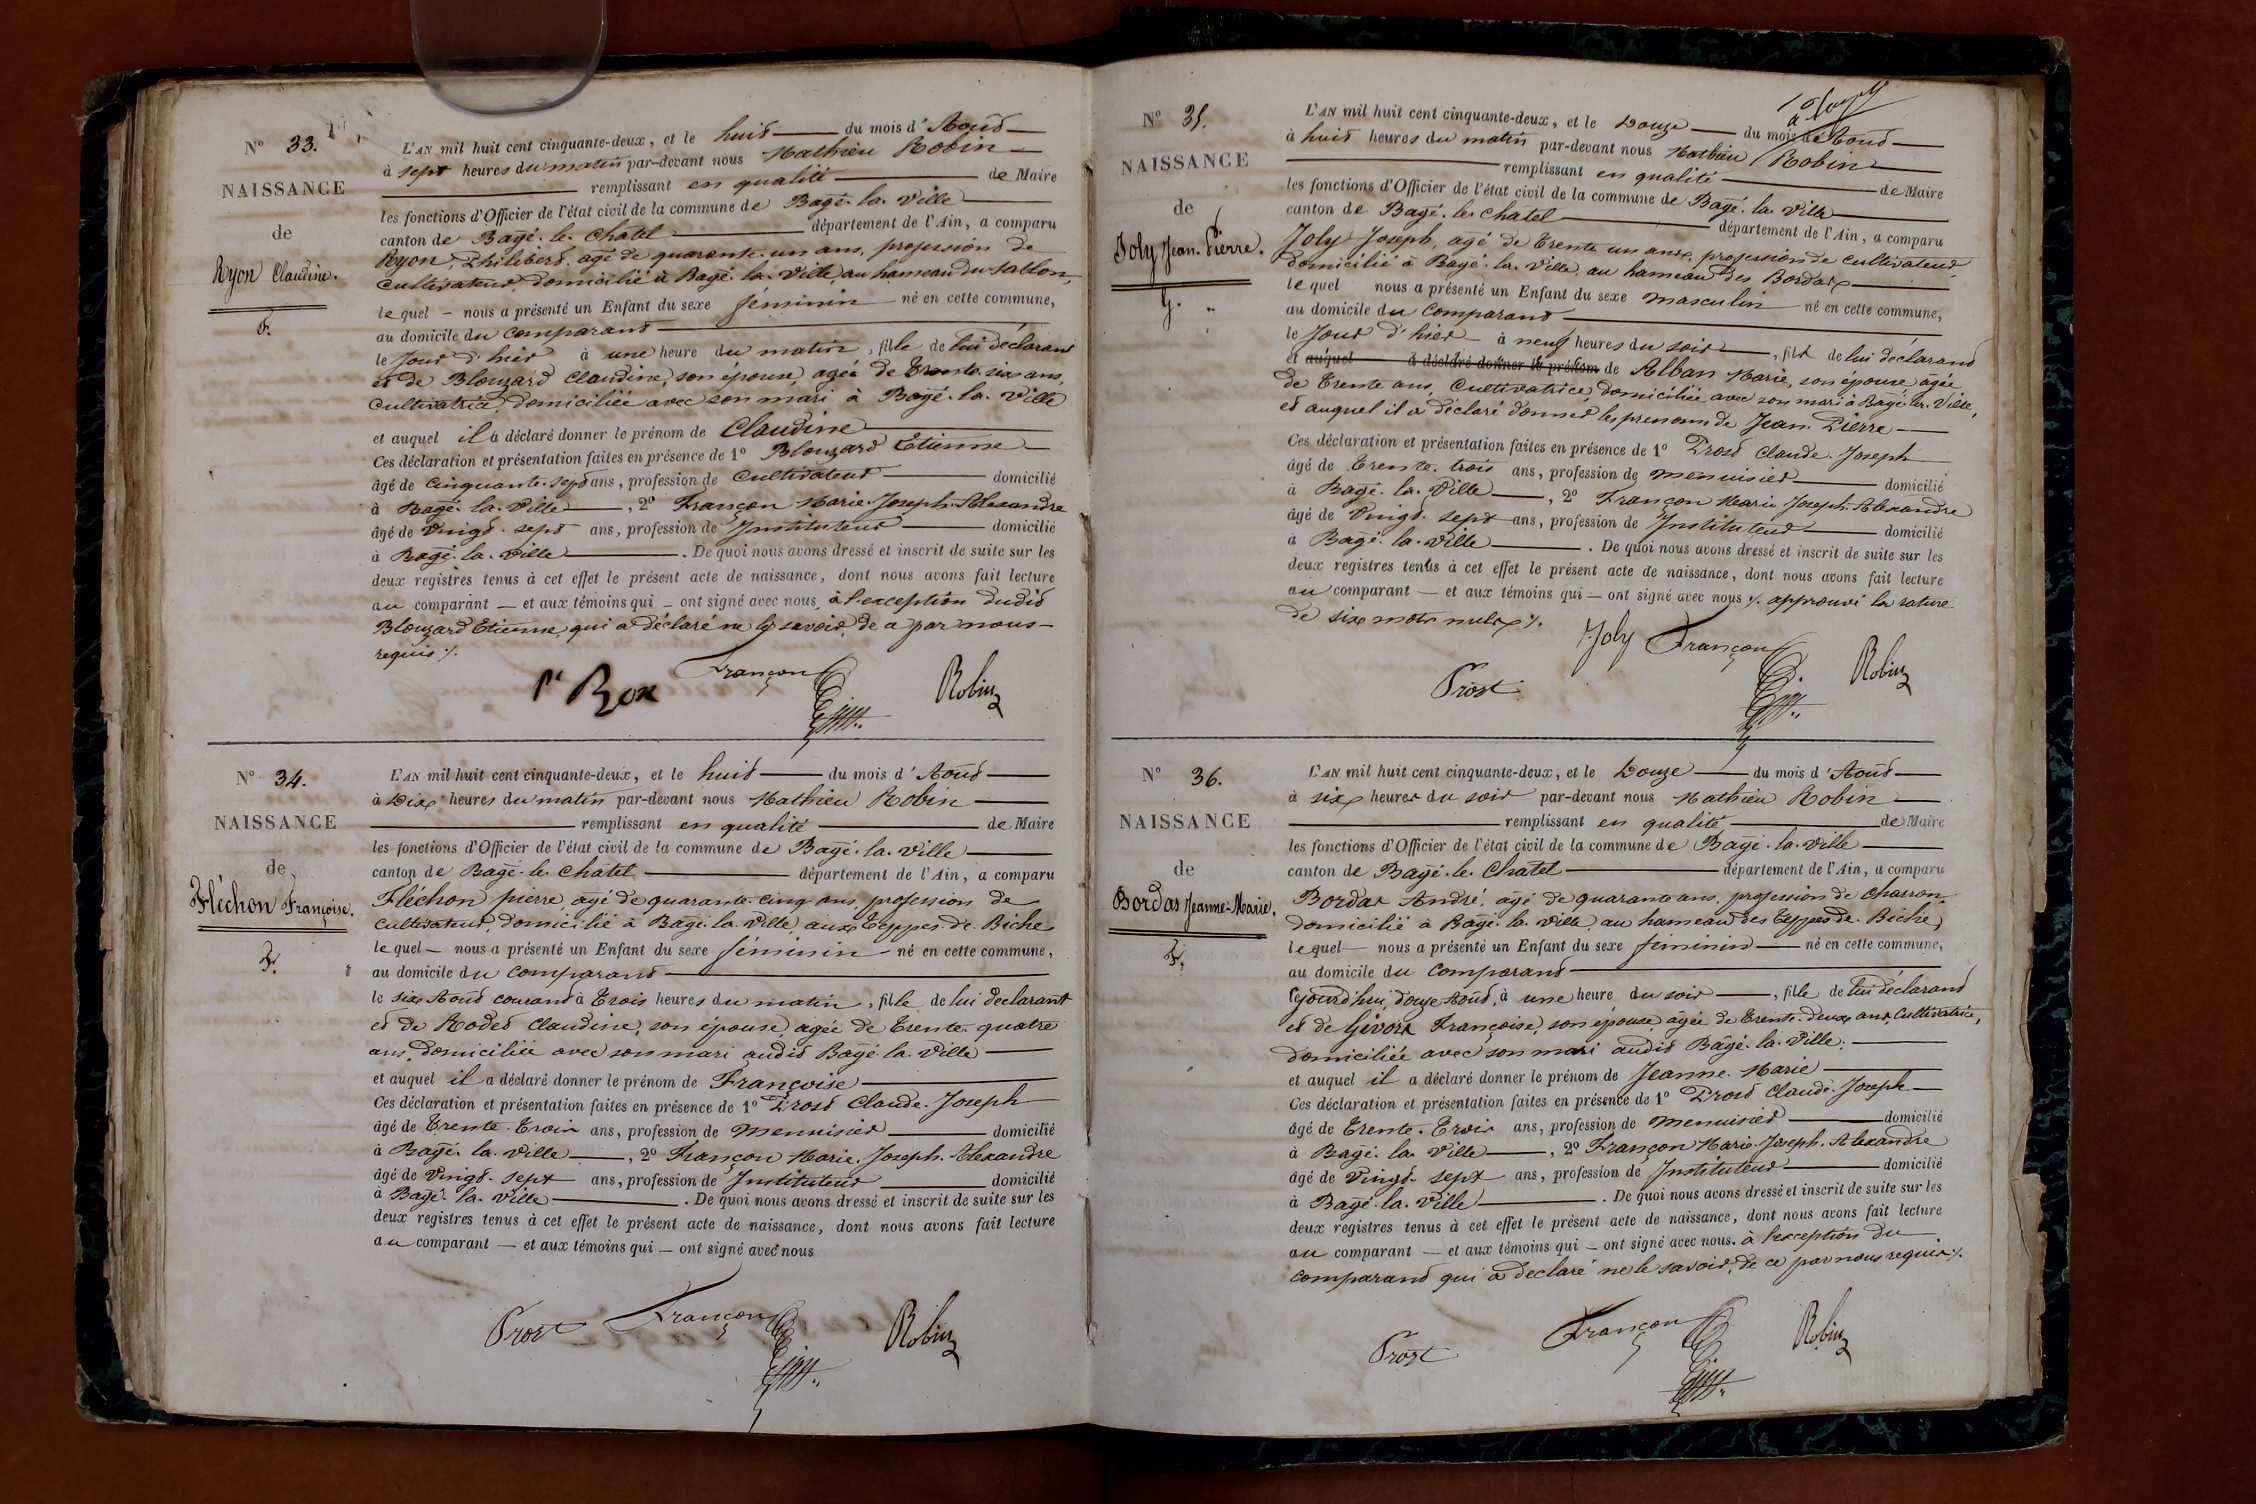 N° 33.
NAISSANCE
de
Ryon Claudine.
F.
L'AN mil huit cent cinquante-deux, et le huit du mois d'Août
à sept heures du matin par-devant nous Mathieu Robin
remplissant en qualité de Maire
les fonctions d'Officier de l'état civil de la commune de Bagé-la-Ville
canton de Bagé-le-Châtel département de l'Ain, a comparu
Ryon, Philibert, agé de quarante-un ans, profession de
cultivateur, domicilié à Bagé-la-Ville, au hameau du Sablon,
lequel – nous a présenté un Enfant du sexe féminin né en cette commune,
au domicile du comparant
le Jour d'hier à une heure du matin, fille de lui déclarant
et de Blouzard Claudine, son épouse, agée de Trente-six ans,
cultivatrice, domiciliée avec son mari à Bagé-la-Ville
et auquel il a déclaré donner le prénom de Claudine
Ces déclaration et présentation faites en présence de 1° Blouzard Etienne
âgé de cinquante-sept ans, profession de Cultivateur domicilié
à Bagé-la-Ville, 2° Françon Marie-Joseph-Alexandre
âgé de Vingt-sept ans, profession de Instituteur domicilié
à Bagé-la-Ville. De quoi nous avons dressé et inscrit de suite sur les
deux registres tenus à cet effet le présent acte de naissance, dont nous avons fait lecture
au comparant — et aux témoins qui – ont signé avec nous, à l'exception dudit
Blouzard Etienne, qui a déclaré ne le savoir, de a par nous
requis ./.
Françon
Robin
N° 34.
NAISSANCE
de
Fléchon Françoise.
F.
L'AN mil huit cent cinquante-deux, et le huit du mois d'Août
à Dix heures du matin par-devant nous Mathieu Robin
remplissant en qualité de Maire
les fonctions d'Officier de l'état civil de la commune de Bagé-la-Ville
canton de Bagé-le-Châtel département de l'Ain, a comparu
Fléchon pierre, agé de quarante-cinq ans, profession de
cultivateur, domicilié à Bagé-la-Ville, aux Teppes-de-Biche
lequel – nous a présenté un Enfant du sexe féminin né en cette commune,
au domicile du comparant
le six Août courant à Trois heures du matin, fille de lui déclarant
et de Rodet Claudine, son épouse, agée de Trente-quatre
ans, domiciliée avec son mari audit Bagé-la-Ville
et auquel il a déclaré donner le prénom de Françoise
Ces déclaration et présentation faites en présence de 1° Prost Claude-Joseph
âgé de Trente-Trois ans, profession de menuisier domicilié
à Bagé-la-Ville, 2° Françon Marie-Joseph-Alexandre
âgé de Vingt-sept ans, profession de Instituteur domicilié
à Bagé-la-Ville. De quoi nous avons dressé et inscrit de suite sur les
deux registres tenus à cet effet le présent acte de naissance, dont nous avons fait lecture
au comparant — et aux témoins qui – ont signé avec nous
Prost Françon Robin
N° 35.
NAISSANCE
de
Joly Jean-Pierre.
G.
L'AN mil huit cent cinquante-deux, et le Douze du mois d'Août
à huit heures du matin par-devant nous Mathieu Robin
remplissant en qualité de Maire
les fonctions d'Officier de l'état civil de la commune de Bagé-la-Ville
canton de Bagé-le-Châtel département de l'Ain, a comparu
Joly Joseph, agé de Trente un ans, profession de cultivateur
domicilié à Bagé-la-Ville, au hameau des Bordax
lequel nous a présenté un Enfant du sexe masculin né en cette commune,
au domicile du comparant
le Jour d'hier à neuf heures du soir, fils de lui déclarant
et auquel a déclaré donner le prénom de Alban Marie, son épouse, agée
de Trente ans, Cultivatrice, domiciliée avec son mari à Bagé-la-Ville,
et auquel il a déclaré donner les prénoms de Jean-Pierre
Ces déclaration et présentation faites en présence de 1° Prost Claude-Joseph
âgé de Trente-trois ans, profession de menuisier domicilié
à Bagé-la-Ville, 2° Françon Marie-Joseph-Alexandre
âgé de Vingt-sept ans, profession de Instituteur domicilié
à Bagé-la-Ville. De quoi nous avons dressé et inscrit de suite sur les
deux registres tenus à cet effet le présent acte de naissance, dont nous avons fait lecture
au comparant — et aux témoins qui – ont signé avec nous ./. approuvé la rature
de six mots nuls ./.
Joly Françon
Prost Robin
N° 36.
NAISSANCE
de
Bordas Jeanne-Marie.
F.
L'AN mil huit cent cinquante-deux, et le Douze du mois d'Août
à six heures du soir par-devant nous Mathieu Robin
remplissant en qualité de Maire
les fonctions d'Officier de l'état civil de la commune de Bagé-la-Ville
canton de Bagé-le-Châtel département de l'Ain, a comparu
Bordas André, agé de quarante ans, profession de charron
domicilié à Bagé-la-Ville, au hameau des Teppes-de-Biche
lequel nous a présenté un Enfant du sexe féminin né en cette commune,
au domicile du comparant
cejourd'hui douze Août, à une heure du soir, fille de lui déclarant
et de Givors Françoise, son épouse agée de Trente-deux ans, Cultivatrice,
domiciliée avec son mari audit Bagé-la-Ville.
et auquel il a déclaré donner le prénom de Jeanne-Marie
Ces déclaration et présentation faites en présence de 1° Prost Claude-Joseph
âgé de Trente-Trois ans, profession de menuisier domicilié
à Bagé-la-Ville, 2° Françon Marie-Joseph-Alexandre
âgé de Vingt-sept ans, profession de Instituteur domicilié
à Bagé-la-Ville. De quoi nous avons dressé et inscrit de suite sur les
deux registres tenus à cet effet le présent acte de naissance, dont nous avons fait lecture
au comparant — et aux témoins qui – ont signé avec nous. à l'exception du
comparant qui a déclaré ne le savoir, de ce par nous requis ./.
Prost Françon Robin